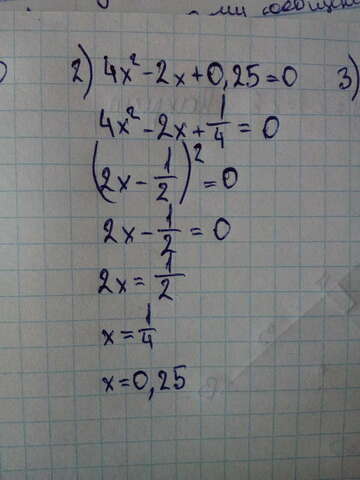 ми сообщени
2) 4x² - 2x + 0,25 = 0 3)
4x² - 2x + 1/4 = 0
(2x - 1/2)² = 0
2x - 1/2 = 0
2x = 1/2
x = 1/4
x = 0,25